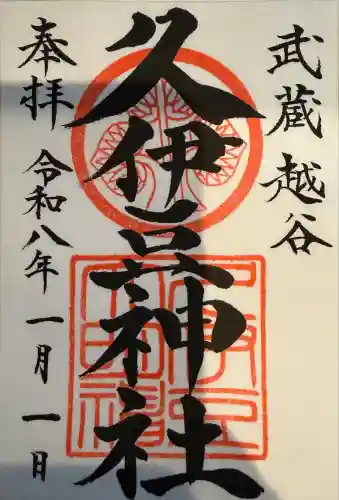 武蔵越谷
久伊豆神社
奉拝
令和八年一月一日